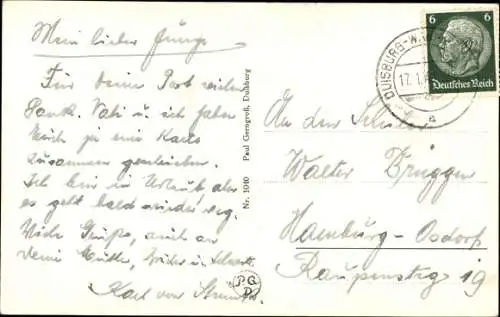 Mein lieber Junge
Für Deine Post vielen
Dank. Vati u. ich haben
Euch ja eine Karte
zusammen geschrieben.
Ich bin in Urlaub aber
es geht bald wieder weg.
Viele Grüße, auch an
deine Mutter,
Karl
Nr. 1040 Paul Gerngroß, Duisburg
PGD
DUISBURG-W
17.1
a
6 6
Deutsches Reich
An den Schüler
Walter Brüggen
Hamburg-Osdorf
Raupenstieg 19